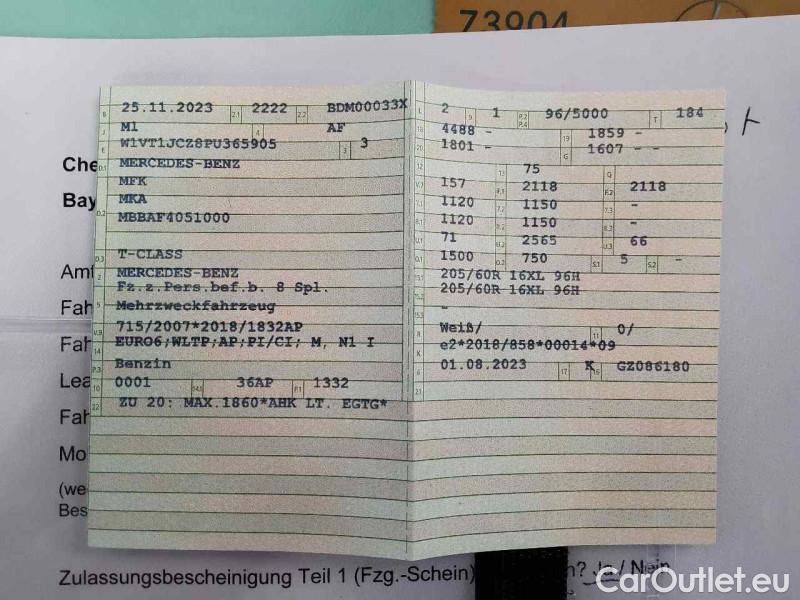 73904
B 25.11.2023 2.1 2222 2.2 BDM00033X
J M1 4 AF
E W1VT1JCZ8PU365905 3 3
D.1 MERCEDES-BENZ
MFK
D.2 MKA
MBBAF4051000
D.3 T-CLASS
2 MERCEDES-BENZ
5 Fz.z.Pers.bef.b. 8 Spl.
Mehrzweckfahrzeug
V.9 715/2007*2018/1832AP
14 EURO6;WLTP;AP;PI/CI; M, N1 I
P.3 Benzin
10 0001 14.1 36AP P.1 1332
22 ZU 20: MAX.1860*AHK LT. EGTG*
L 2 9 1 P.2 P.4 96/5000 T 184
18 4488 - 19 1859 -
20 1801 - G 1607 - -
12 13 75 Q
V.7 157 F.1 2118 F.2 2118
7.1 1120 7.2 1150 7.3 -
8.1 1120 8.2 1150 8.3 -
U.1 71 U.2 2565 U.3 66
O.1 1500 O.2 750 S.1 5 S.2 -
15.1 205/60R 16XL 96H
15.2 205/60R 16XL 96H
15.3 -
R Weiß/ 11 0/
K e2*2018/858*00014*09
6 01.08.2023 17 K 16 GZ086180
21
Che
Bay
Amt
Fah
Fah
Lea
Fah
Mo
(we
Bes
Zulassungsbescheinigung Teil 1 (Fzg.-Schein) n? Ja / Nein
CarOutlet.eu